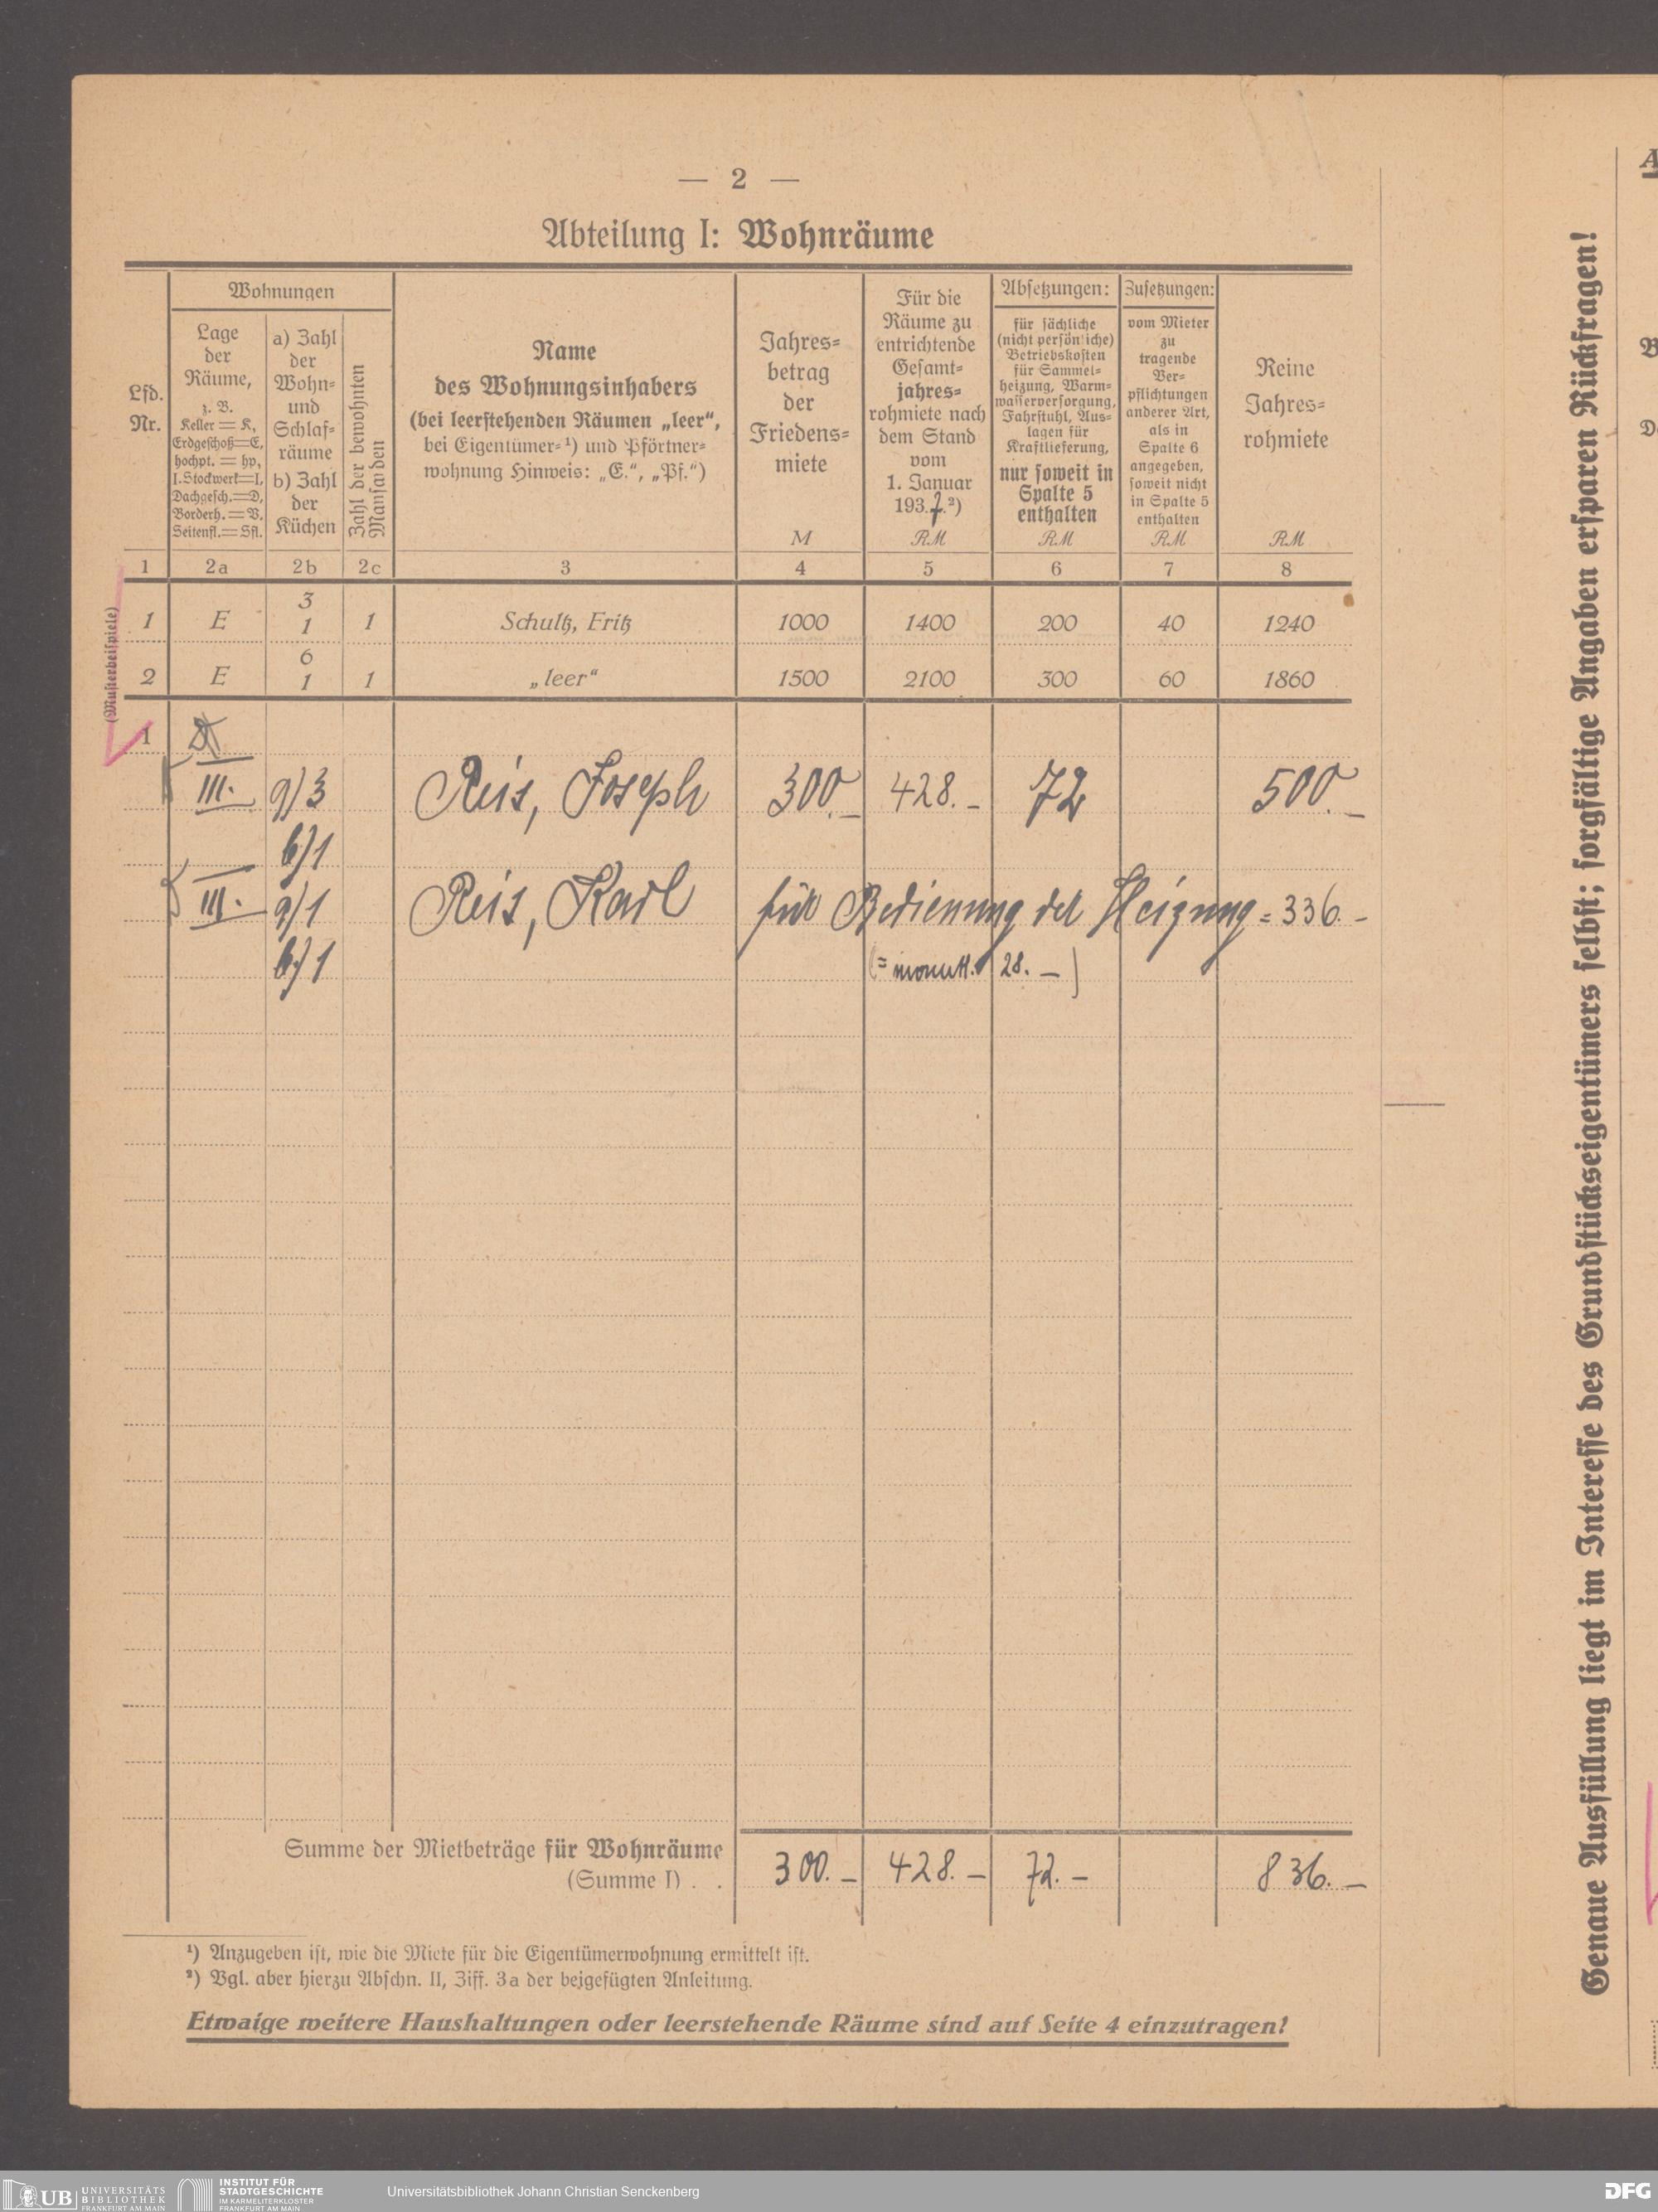 — 2 —
Abteilung I: Wohnräume
Lfd.
Nr.
Wohnungen
Lage
der
Räume,
z. B.
Keller = K,
Erdgeschoß=E,
hochpt. = hp,
I.Stockwerk=I,
Dachgesch.=D,
Borderh. = V,
Seitenfl.=Sfl.
a) Zahl
der
Wohn-
und
Schlaf-
räume
b) Zahl
der
Küchen
Zahl der bewohnten
Mansarden
Name
des Wohnungsinhabers
(bei leerstehenden Räumen „leer“,
bei Eigentümer-¹) und Pförtner-
wohnung Hinweis: „E.“, „Pf.“)
Jahres-
betrag
der
Friedens-
miete
M
Für die
Räume zu
entrichtende
Gesamt-
jahres-
rohmiete nach
dem Stand
vom
1. Januar
1937.²)
RM
Absetzungen:
für sächliche
(nicht persönliche)
Betriebskosten
für Sammel-
heizung, Warm-
wasserversorgung,
Fahrstuhl, Aus-
lagen für
Kraftlieferung,
nur soweit in
Spalte 5
enthalten
RM
Zusetzungen:
vom Mieter
zu
tragende
Ver-
pflichtungen
anderer Art,
als in
Spalte 6
angegeben,
soweit nicht
in Spalte 5
enthalten
RM
Reine
Jahres-
rohmiete
RM
1 2a 2b 2c 3 4 5 6 7 8
(Musterbeispiele)
1 E 3 1 1 Schultz, Fritz 1000 1400 200 40 1240
2 E 6 1 1 „leer“ 1500 2100 300 60 1860
1
III. a) 3 Reis, Joseph 300.— 428.— 72 500.—
b) 1
III. a) 1 Reis, Karl für Bedienung der Heizung = 336.—
b) 1 (= monatl. 28.—)
Summe der Mietbeträge für Wohnräume
(Summe I) . . 300.— 428.— 72.— 836.—
¹) Anzugeben ist, wie die Miete für die Eigentümerwohnung ermittelt ist.
²) Vgl. aber hierzu Abschn. II, Ziff. 3a der beigefügten Anleitung.
Etwaige weitere Haushaltungen oder leerstehende Räume sind auf Seite 4 einzutragen!
Genaue Ausfüllung liegt im Interesse des Grundstückseigentümers selbst; sorgfältige Angaben ersparen Rückfragen!
UB UNIVERSITÄTS
BIBLIOTHEK
FRANKFURT AM MAIN
INSTITUT FÜR
STADTGESCHICHTE
IM KARMELITERKLOSTER
FRANKFURT AM MAIN
Universitätsbibliothek Johann Christian Senckenberg
DFG